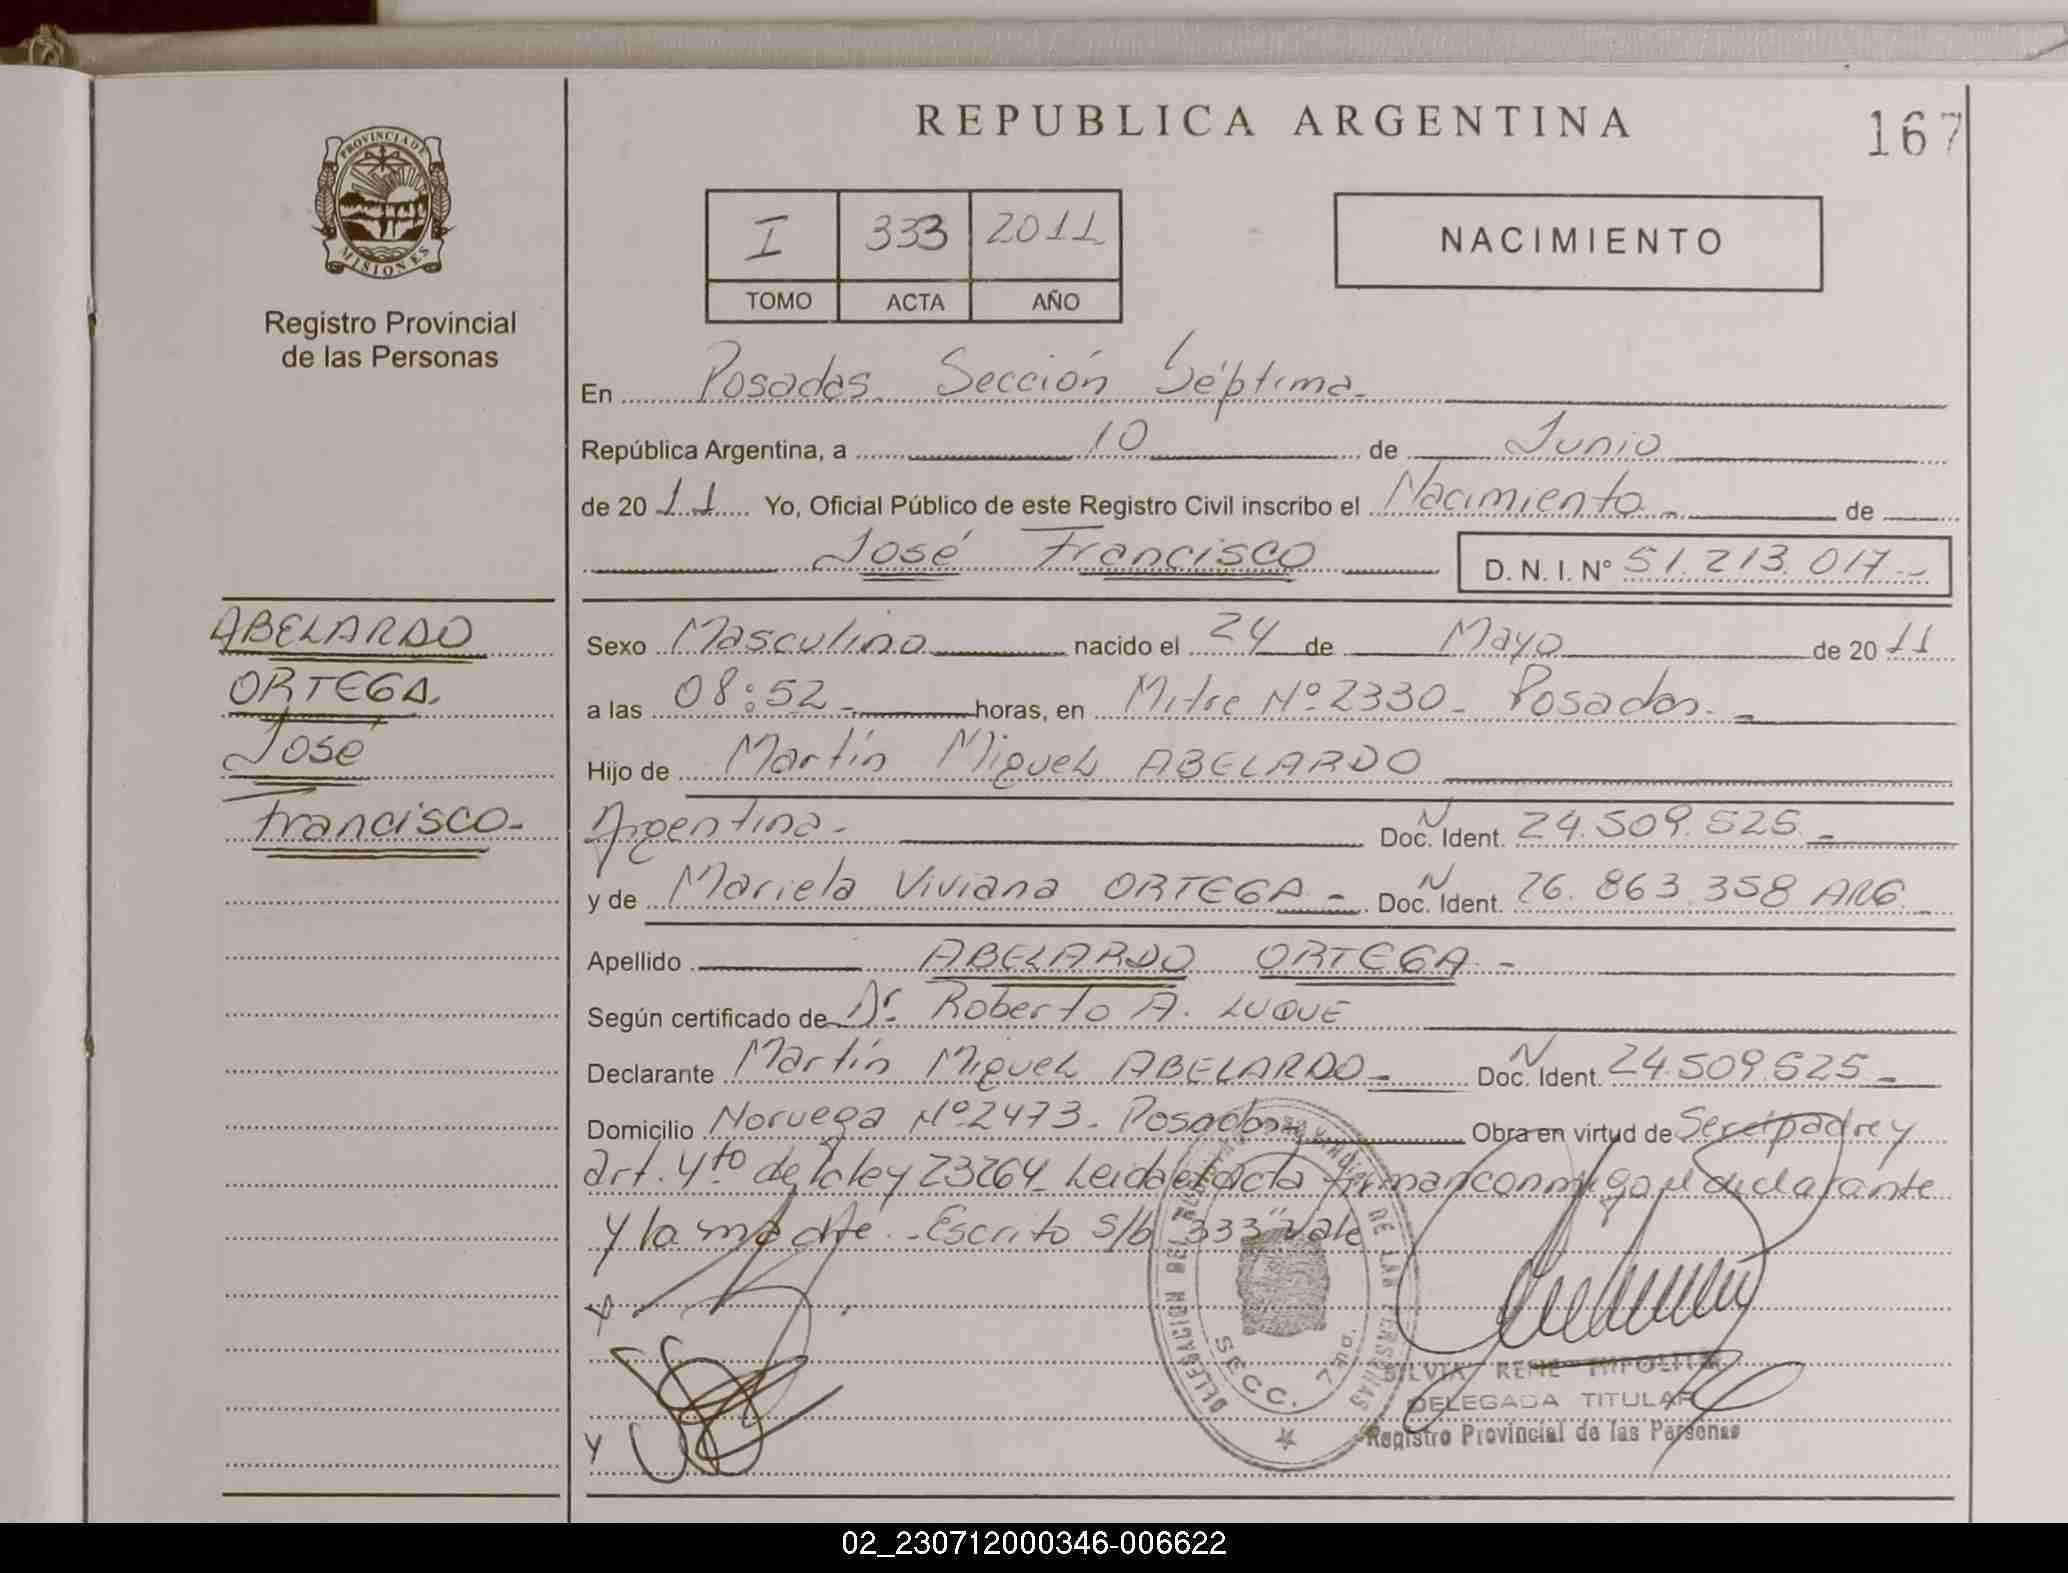 REPUBLICA ARGENTINA
167
PROVINCIA DE
MISIONES
Registro Provincial
de las Personas
I 333 2011
TOMO ACTA AÑO
NACIMIENTO
En Posadas Sección Séptima.
República Argentina, a 10 de Junio
de 20 11 Yo, Oficial Público de este Registro Civil inscribo el Nacimiento - de
José Francisco D. N. I. N° 51.213.017 -
ABELARDO
ORTEGA.
José
Francisco-
Sexo Masculino nacido el 24 de Mayo de 20 11
a las 08:52 - horas, en Mitre Nº 2330 - Posadas. -
Hijo de Martín Miguel ABELARDO
Argentina. - Doc. N Ident. 24.509.525 -
y de Mariela Viviana ORTEGA - Doc. N Ident. 26.863.358 ARG -
Apellido ABELARDO ORTEGA -
Según certificado de Dr. Roberto A. LUQUE
Declarante Martín Miguel ABELARDO - Doc. N Ident. 24.509.525 -
Domicilio Noruega Nº 2473 - Posadas Obra en virtud de Ser el padre y
art. 4to de la ley 23264 - Leida el acta firman conmigo el declarante
y la madre. - Escrito s/b "333" Vale
X
Y
DELEGACION DE LAS PERSONAS
SECC. 7
SILVIA RENE
DELEGADA TITULAR
Registro Provincial de las Personas
02_230712000346-006622